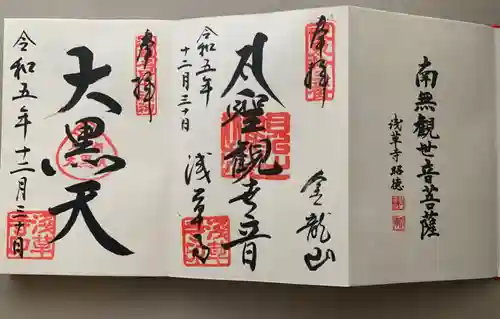 南無觀世音菩薩
浅草寺 昭德
奉拝
金龍山
聖観世音
浅草寺
令和五年
十二月三十日
奉拝
大黒天
令和五年十二月三十日
浅草